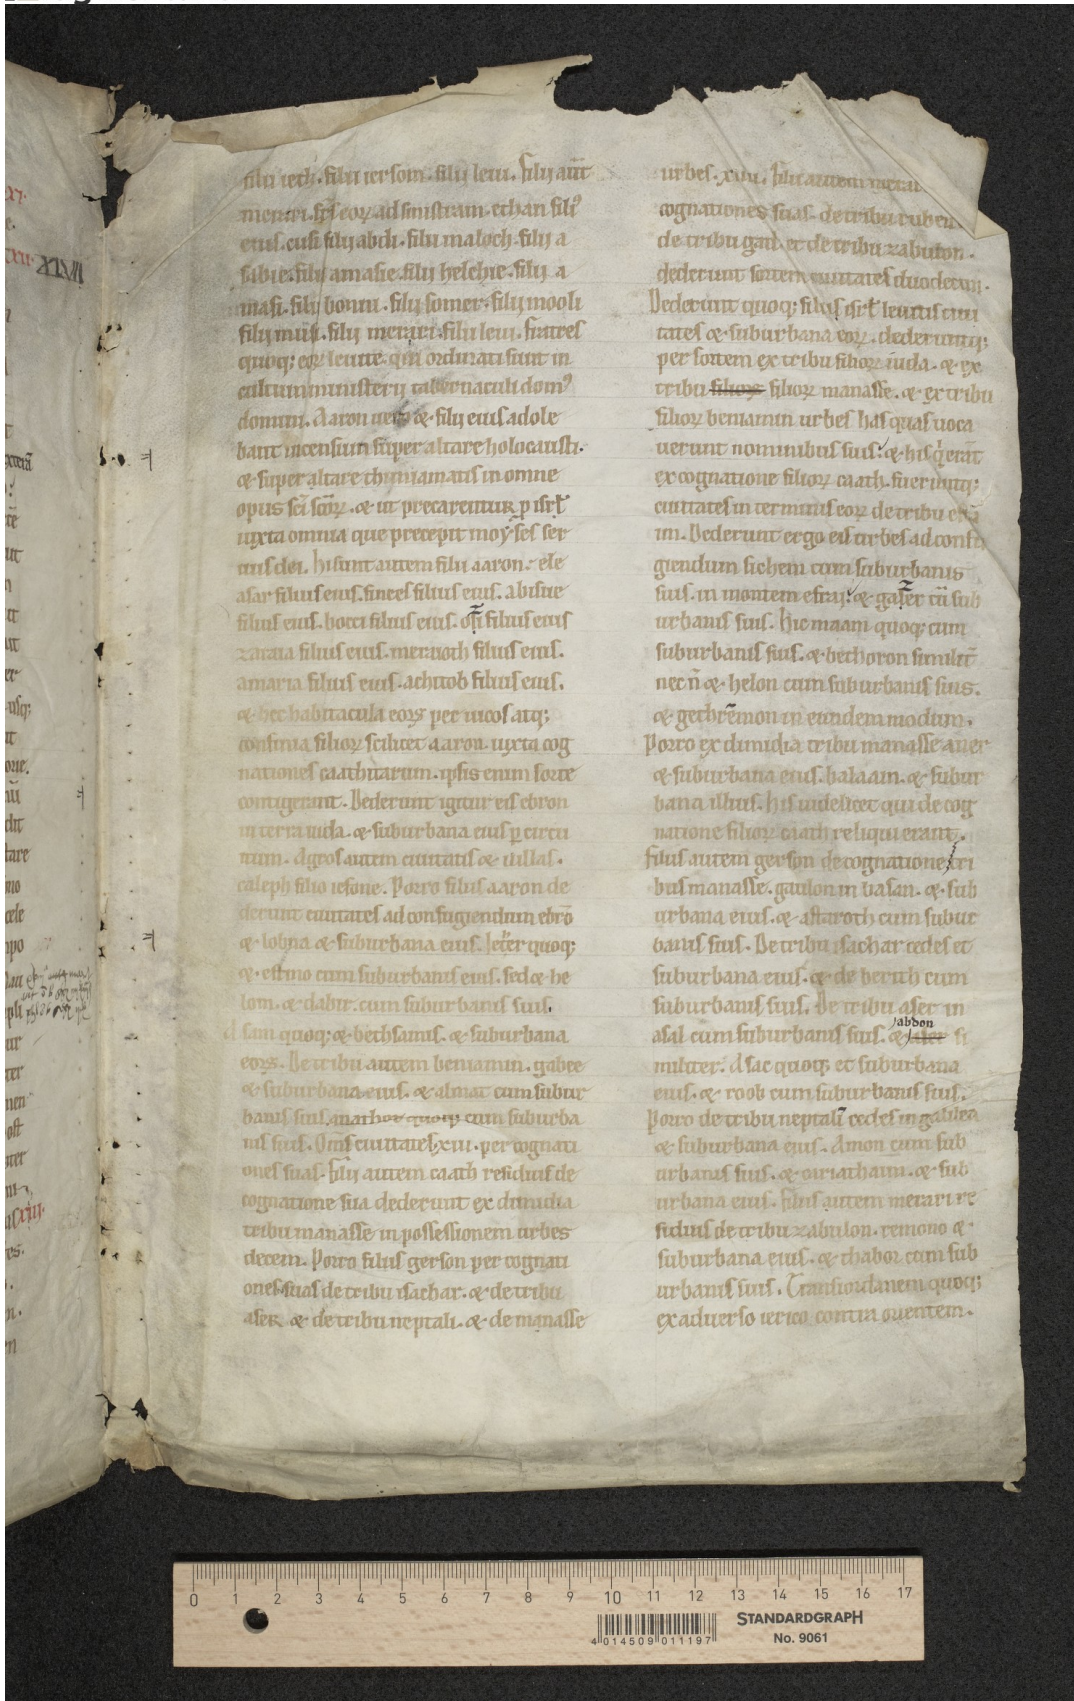 filii ieth. filii iersom. filii leui. Filij aut̄
merari. fr̄s eoꝝ ad sinistram. ethan filiꝰ
eius. cusi filij abdi. filii maloch. filij a
sabie. filij amasie. filij helchie. filij a
masi. filij bonni. filij somer. filij mooli
filij musi. filij merari. filij leui. fratres
quoq; eoꝝ leuite. qui ordinati sunt in
cultum ministerij tabernaculi domꝰ
domini. Aaron uero & filij eius adole
bant incensum super altare holocausti.
& super altare thimiamatis in omne
opus sc̄i sc̄oꝝ. & ut precarentur ꝓ isrł
iuxta omnia que precepit moyses ser
uus dei. hi sunt autem filij aaron. ele
asar filius eius. finees filius eius. abisue
filius eius. bocci filius eius. osi filius eius
zaraia filius eius. meraioth filius eius.
amaria filius eius. achitob filius eius.
& hec habitacula eoꝝ per uicos atq;
confinia filioꝝ scilicet aaron. iuxta cog
nationes caathitarum. ipsis enim sorte
contigerant. Dederunt igitur eis ebron
in terra iuda. & suburbana eius ꝑ circu
itum. Agros autem ciuitatis & uillas.
caleph filio iefone. Porro filiis aaron de
derunt ciuitates ad confugiendum ebrō
& lobna & suburbana eius. Ieter quoq;
& estimo cum suburbanis eius. sed & he
lom. & dabir. cum suburbanis suis.
Asan quoq; & bethsamis. & suburbana
eoꝝ. De tribu autem beniamin. gabee
& suburbana eius. & almat cum subur
banis suis. anathot quoq; cum suburba
nis suis. Om̄s ciuitates xiii. per cognati
ones suas. filij autem caath residuis de
cognatione sua dederunt ex dimidia
tribu manasse in possessionem urbes
decem. Porro filiis gerson per cognati
ones suas de tribu isachar. & de tribu
aser & de tribu neptali. & de manasse
urbes. xiii. filii autem merari
cognationes suas. de tribu ruben
de tribu gad. et de tribu zabulon.
dederunt sortem ciuitates duodecim.
Dederunt quoq; filij isrł leuitis ciui
tates & suburbana eoꝝ. dederuntq;
per sortem ex tribu filioꝝ iuda. & ex
tribu filioꝝ filioꝝ manasse. & ex tribu
filioꝝ beniamin urbes has quas uoca
uerunt nominibus suis. & his q̇ erant
ex cognatione filioꝝ caath. fueruntq;
ciuitates in terminis eoꝝ de tribu efra
im. Dederunt ergo eis urbes ad confu
giendum sichem cum suburbanis
suis. in montem efraī. & gaser cū sub
urbanis suis. hiemaam quoq; cum
suburbanis suis. & bethoron similit̄
nec n̄ & helon cum suburbanis suis.
& gethremon in eundem modum.
Porro ex dimidia tribu manasse aner
& suburbana eius. balaam. & subur
bana illius. his uidelicet qui de cog
natione filioꝝ caath reliqui erant.
filiis autem gerson de cognatione tri
bus manasse. gaulon in basan. & sub
urbana eius. & astaroth cum subur
banis suis. De tribu isachar cedes et
suburbana eius. & deberith cum
suburbanis suis. De tribu aser in
abdon
asal cum suburbanis suis. & aser si
militer. Asac quoq; et suburbana
eius. & roob cum suburbanis suis.
Porro de tribu neptalī cedes in galilea
& suburbana eius. Amon cum sub
urbanis suis. & cariathaim. & sub
urbana eius. filiis autem merari re
siduis de tribu zabulon. remono &
suburbana eius. & thabor cum sub
urbanis suis. Transiordanem quoq;
ex aduerso ierico contra orientem.
0 1 2 3 4 5 6 7 8 9 10 11 12 13 14 15 16 17
4 014509 011197
STANDARDGRAPH
No. 9061